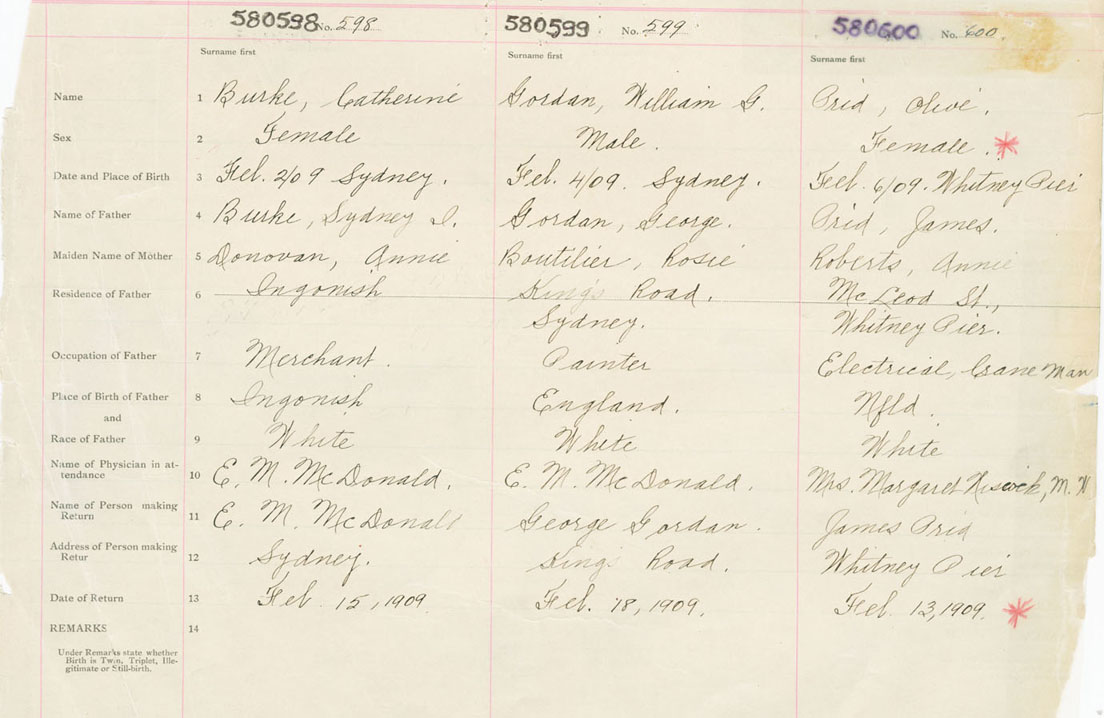 580598 No. 598 580599 No. 599 580600 No. 600
Surname first Surname first Surname first
Name 1 Burke, Catherine Gordan, William G. Prid, Olive.
Sex 2 Female Male. Female. *
Date and Place of Birth 3 Feb. 2/09 Sydney. Feb. 4/09. Sydney. Feb. 6/09. Whitney Pier
Name of Father 4 Burke, Sydney I. Gordan, George. Prid, James.
Maiden Name of Mother 5 Donovan, Annie Boutilier, Rosie Roberts, Annie
Residence of Father 6 Ingonish King's Road. McLeod St.,
Sydney. Whitney Pier.
Occupation of Father 7 Merchant. Painter Electrical, Crane Man
Place of Birth of Father 8 Ingonish England. Nfld.
and
Race of Father 9 White White White
Name of Physician in at-
tendance 10 E. M. McDonald. E. M. McDonald. Mrs. Margaret Hiscock, M. W
Name of Person making
Return 11 E. M. McDonald George Gordan. James Prid
Address of Person making
Retur 12 Sydney. King's Road. Whitney Pier
Date of Return 13 Feb. 15, 1909. Feb. 18, 1909. Feb. 13, 1909. *
REMARKS 14
Under Remarks state whether
Birth is Twin, Triplet, Ille-
gitimate or Still-birth.